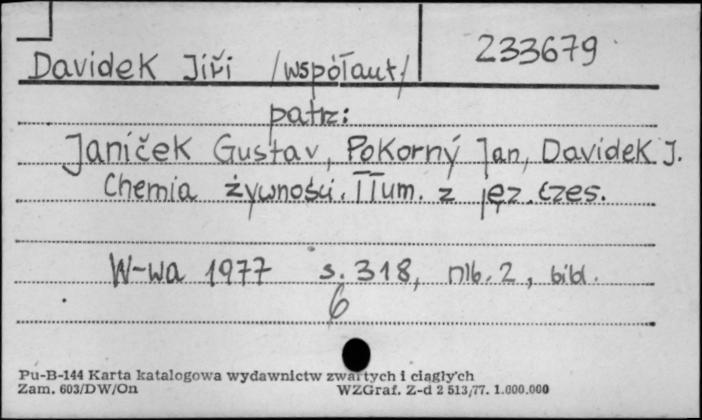 233679
Davidek Jiři /współaut/
patrz:
Janíček Gustav, Pokorný Jan, Davidek J.
Chemia żywności. Tłum. z jęz. czes.
W-wa 1977 s. 318, nlb. 2, bibl.
6
Pu-B-144 Karta katalogowa wydawnictw zwartych i ciągłych
Zam. 603/DW/On WZGraf. Z-d 2 513/77. 1.000.000